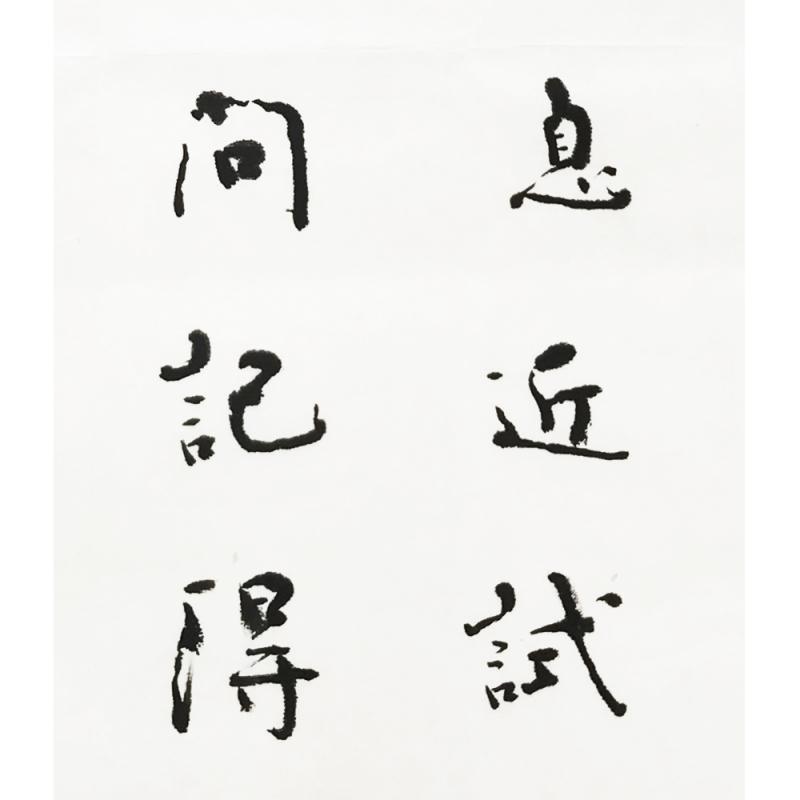 息近試
問記得